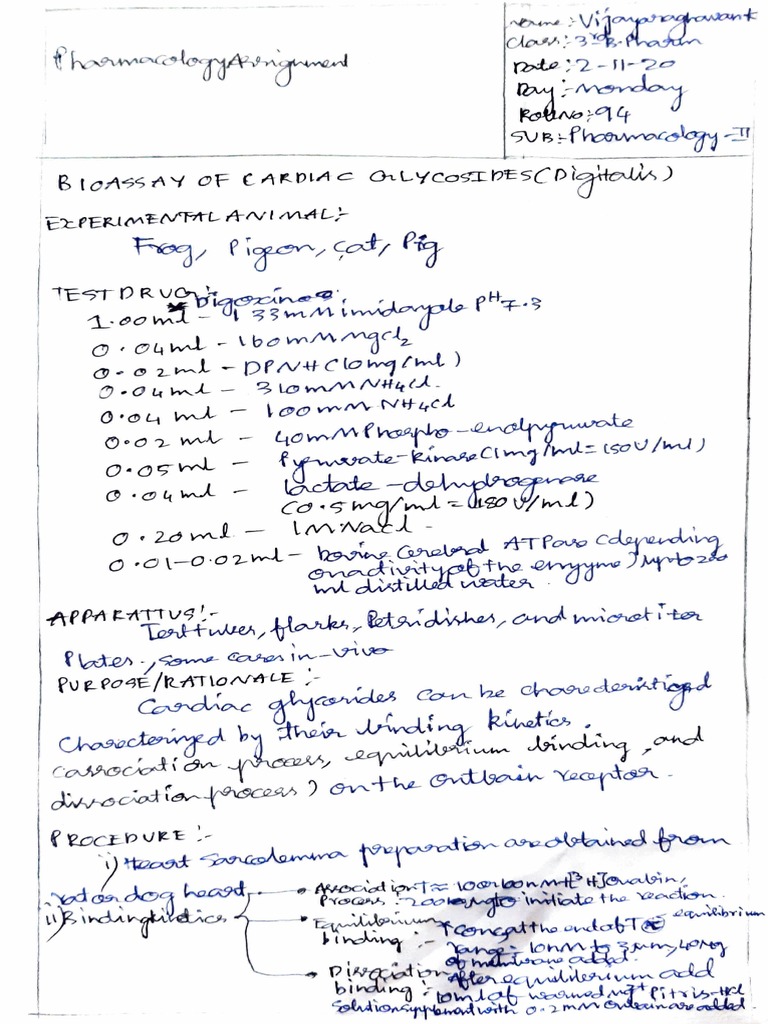 Pharmacology Assignment
Name:- Vijayaraghavan K
Class:- 3rd B.Pharm
Date:- 2-11-20
Day:- Monday
Roll No:- 94
SUB:- Pharmacology-II
BIOASSAY OF CARDIAC GLYCOSIDES (Digitalis)
EXPERIMENTAL ANIMAL:-
Frog, Pigeon, Cat, Pig
TEST DRUG:-
Digoxin
1.00ml - 133mM imidazole pH 7.3
0.04ml - 160mM MgCl2
0.02ml - DPNH (10mg/ml)
0.04ml - 310mM NH4Cl.
0.04 ml - 100mM NH4Cl
0.02 ml - 40mM Phospho-enolpyruvate
0.05ml - Pyruvate-kinase (1mg/ml = 150U/ml)
0.04ml - lactate-dehydrogenase
(0.5mg/ml = 180U/ml)
0.20ml - 1M NaCl -
0.01-0.02ml - bovine Cerebral ATPase (depending
on activity of the enzyme) upto 200
ml distilled water.
APPARATTUS:-
Test tubes, flasks, Petridishes, and microtiter
Plates., some cases in-vivo
PURPOSE/RATIONALE:-
Cardiac glycosides can be
Charecterized by their binding kinetics.
(association process, equilibrium binding, and
dissociation process) on the receptor.
PROCEDURE:-
i) Heart Sarcolemma preparation are obtained from
rat or dog heart.
ii) Binding kinetics
Association
Process:- to initiate the reaction.
Equilibrium
binding:- conc at the end of equilibrium
range - 10nM to 3µm, 40µg
of membrane added.
Dissociation
binding:- After equilibrium add
10ml of warmed Mg+ Pi tris-HCl
Solution supplement with 0.2mM are added.